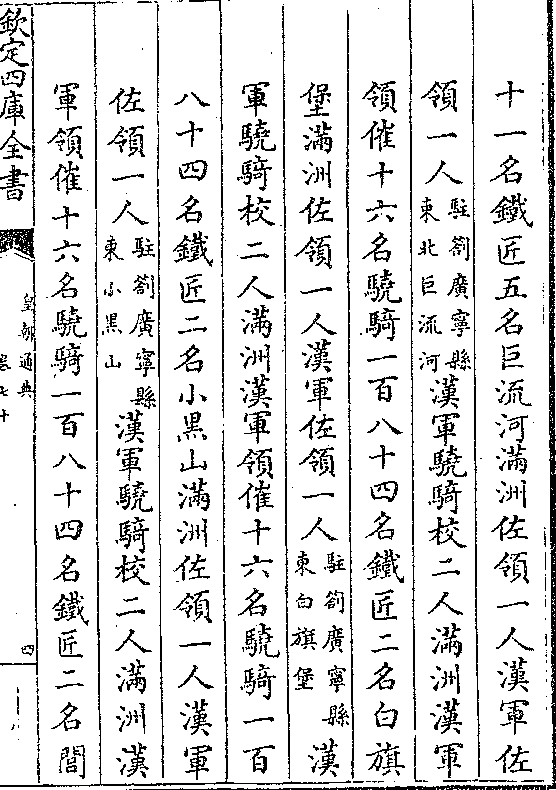 十一名鐵匠五名巨流河滿洲佐領一人漢軍佐
領一人駐劄廣寧縣東北巨流河漢軍驍騎校二人滿洲漢軍
領催十六名驍騎一百八十四名鐵匠二名白旗
堡滿洲佐領一人漢軍佐領一人駐劄廣寧縣東白旗堡漢
軍驍騎校二人滿洲漢軍領催十六名驍騎一百
八十四名鐵匠二名小黑山滿洲佐領一人漢軍
佐領一人駐劄廣寧縣東小黑山漢軍驍騎校二人滿洲漢
軍領催十六名驍騎一百八十四名鐵匠二名閭
欽定四庫全書
皇朝通典
卷七十
四